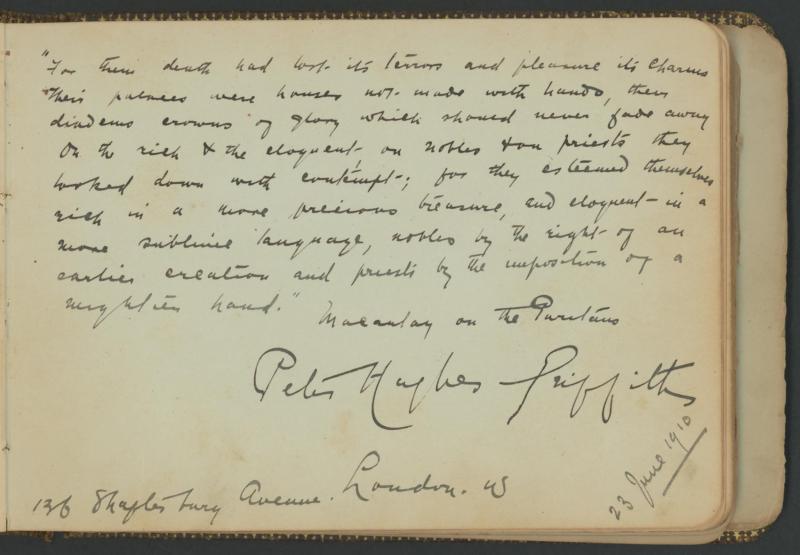 "For them death had lost its terrors and pleasure its charms
Their palaces were houses not made with hands, their
diadems crowns of glory which should never fade away
On the rich & the eloquent, on nobles & on priests they
looked down with contempt; for they esteemed themselves
rich in a more precious treasure, and eloquent in a
more sublime language, nobles by the right of an
earlier creation and priests by the imposition of a
mightier hand."
Macaulay on the Puritans
Peter Hughes Griffiths
136 Shaftesbury Avenue. London. W
23 June 1910